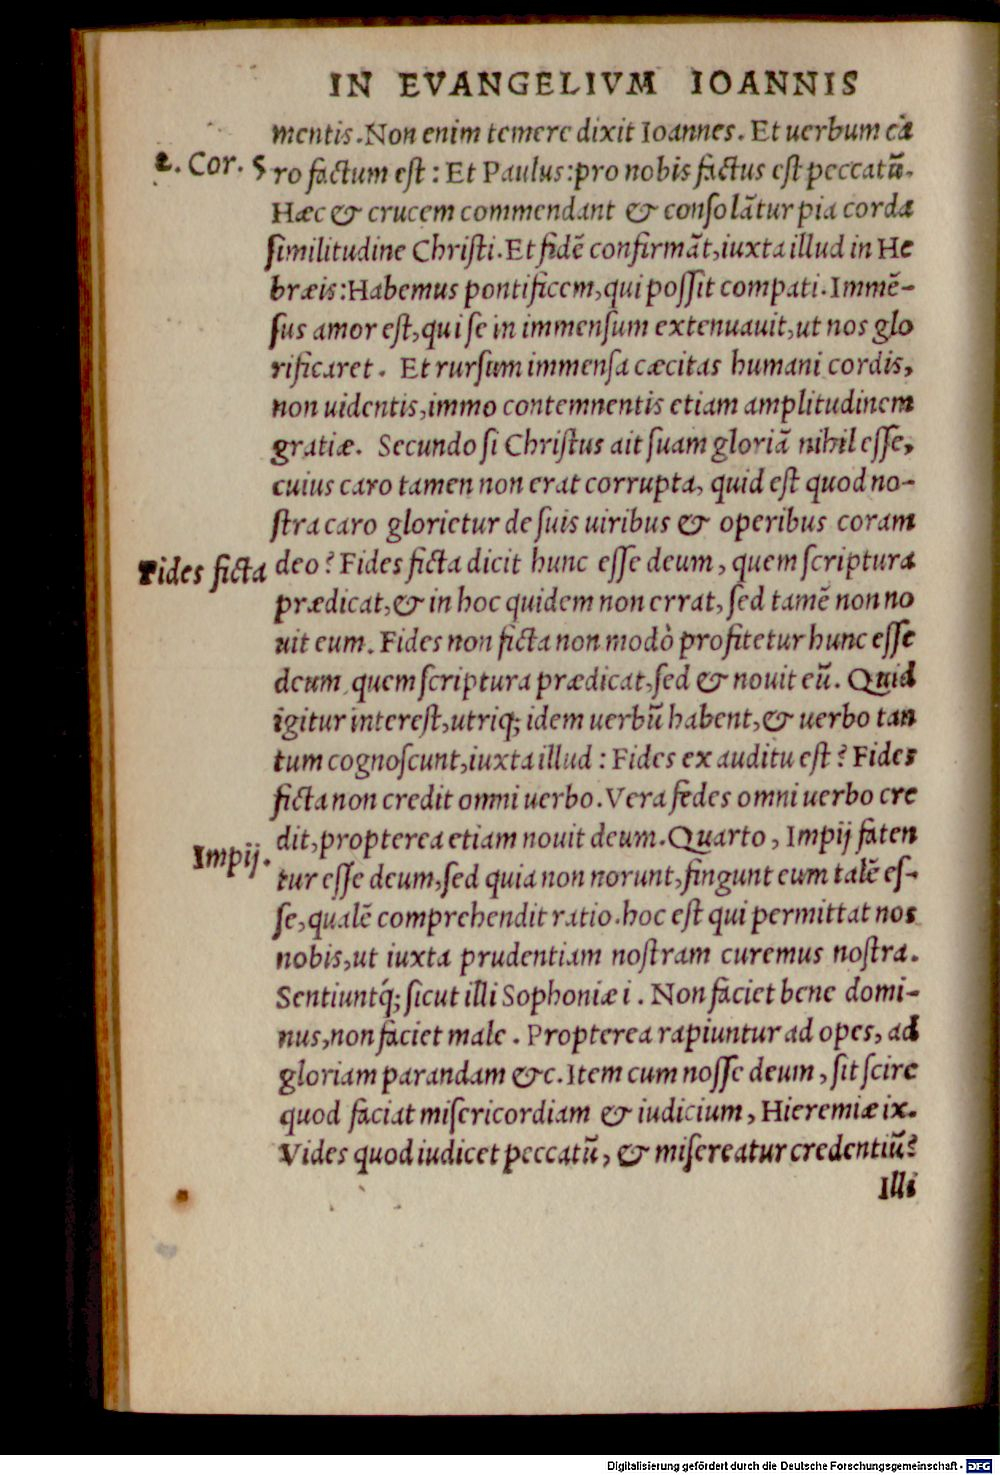 IN EVANGELIVM IOANNIS
mentis. Non enim temere dixit Ioannes. Et uerbum ca
2. Cor. 5
ro factum est: Et Paulus: pro nobis factus est peccatũ.
Hæc & crucem commendant & consolãtur pia corda
similitudine Christi. Et fidẽ confirmãt, iuxta illud in He
bræis: Habemus pontificem, qui possit compati. Immẽ-
sus amor est, qui se in immensum extenuauit, ut nos glo
rificaret. Et rursum immensa cæcitas humani cordis,
non uidentis, immo contemnentis etiam amplitudinem
gratiæ. Secundo si Christus ait suam gloriã nihil esse,
cuius caro tamen non erat corrupta, quid est quod no-
stra caro glorietur de suis uiribus & operibus coram
Fides ficta
deo? Fides ficta dicit hunc esse deum, quem scriptura
prædicat, & in hoc quidem non errat, sed tamẽ non no
uit eum. Fides non ficta non modò profitetur hunc esse
deum, quem scriptura prædicat, sed & nouit eũ. Quid
igitur interest, utriq; idem uerbũ habent, & uerbo tan
tum cognoscunt, iuxta illud: Fides ex auditu est? Fides
ficta non credit omni uerbo. Vera fedes omni uerbo cre
dit, propterea etiam nouit deum. Quarto, Impij faten
Impij.
tur esse deum, sed quia non norunt, fingunt eum talẽ es-
se, qualẽ comprehendit ratio. hoc est qui permittat nos
nobis, ut iuxta prudentiam nostram curemus nostra.
Sentiuntq́; sicut illi Sophoniæ i. Non faciet bene domi-
nus, non faciet male. Propterea rapiuntur ad opes, ad
gloriam parandam &c. Item cum nosse deum, sit scire
quod faciat misericordiam & iudicium, Hieremiæ ix.
Vides quod iudicet peccatũ, & misereatur credentiũ?
Illi
Digitalisierung gefördert durch die Deutsche Forschungsgemeinschaft - DFG